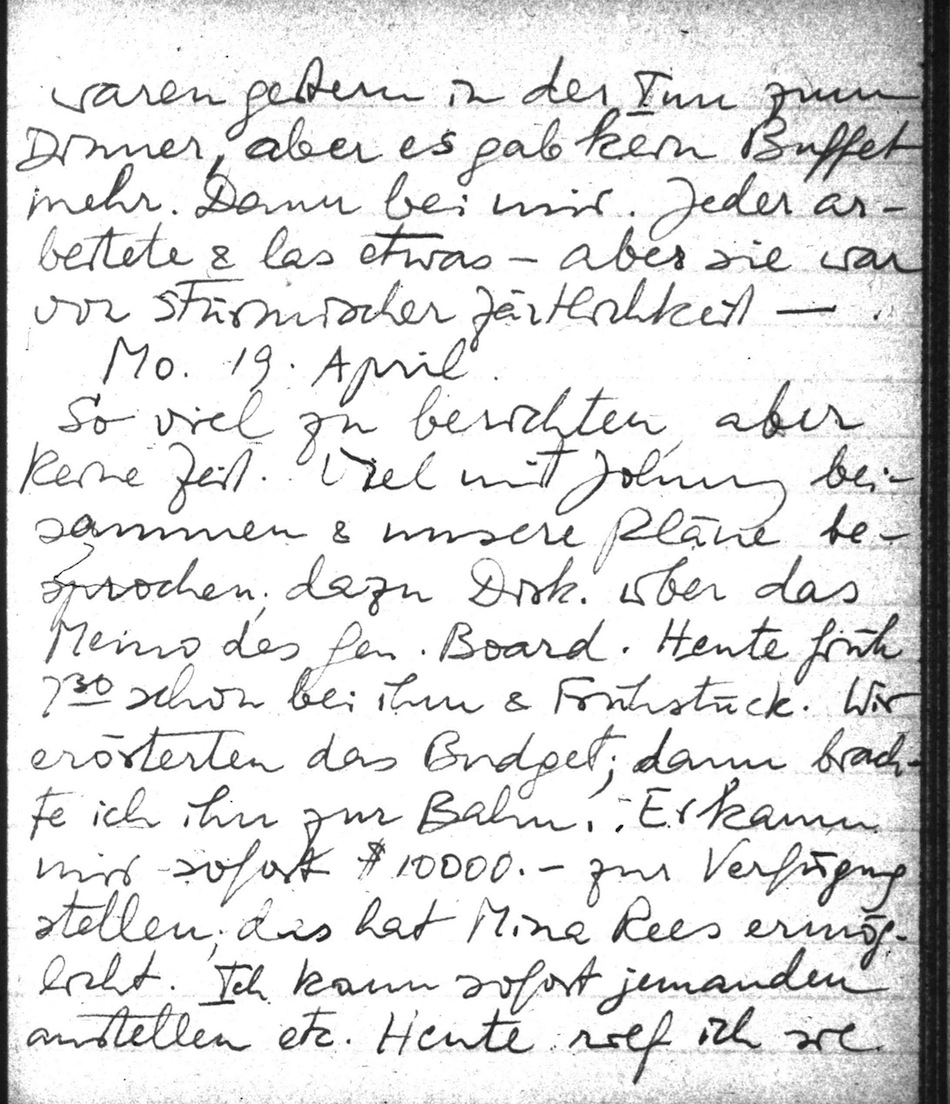 waren gestern in der Inn zum
Dinner, aber es gab kein Buffet
mehr. Dann bei mir. Jeder ar-
beitete & las etwas – aber sie war
von stürmischer Zärtlichkeit — .
Mo. 19. April.
So viel zu berichten, aber
keine Zeit. Viel mit Johnny bei-
sammen & unsere Pläne be-
sprochen; dazu Disk. über das
Memo des Gen. Board. Heute früh
7³⁰ schon bei ihm & Frühstück. Wir
erörterten das Budget; dann brach-
te ich ihn zur Bahn. Er kann
mir sofort $ 10000.– zur Verfügung
stellen; das hat Mina Rees ermög-
licht. Ich kann sofort jemanden
anstellen etc. Heute rief ich sie